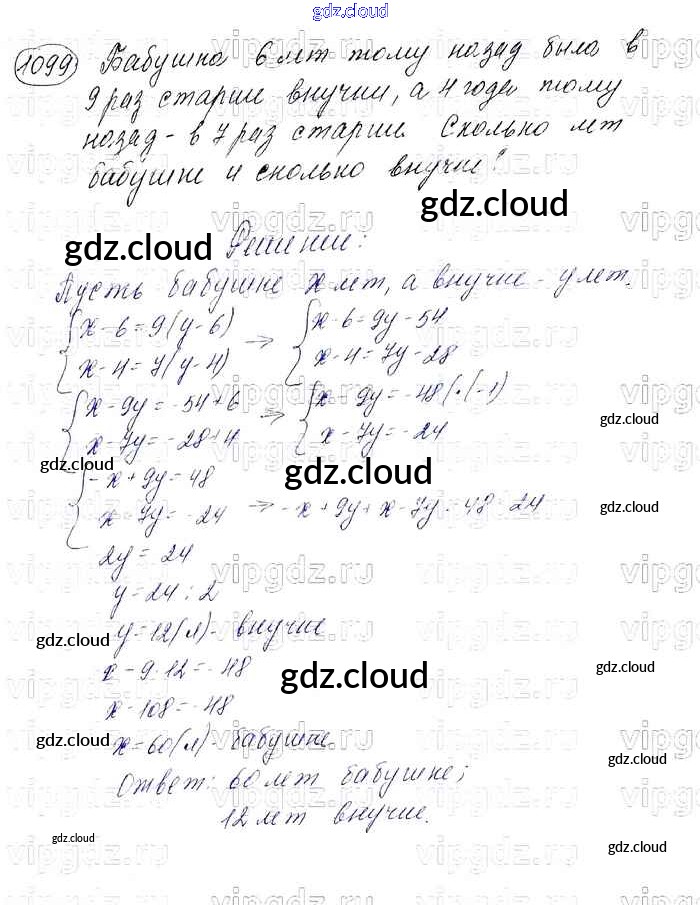 gdz.cloud
1099 Бабушка 6 лет тому назад была в
9 раз старше внучки, а 4 года тому
назад - в 7 раз старше. Сколько лет
бабушке и сколько внучке?
gdz.cloud
gdz.cloud Решение:
Пусть бабушке x лет, а внучке - y лет.
{ x - 6 = 9(y - 6) → { x - 6 = 9y - 54
x - 4 = 7(y - 4) x - 4 = 7y - 28
{ x - 9y = -54 + 6 → { x - 9y = -48 | · (-1)
x - 7y = -28 + 4 x - 7y = -24
gdz.cloud
gdz.cloud gdz.cloud
{ -x + 9y = 48
x - 7y = -24 → -x + 9y + x - 7y = 48 - 24
gdz.cloud
2y = 24
y = 24 : 2
y = 12 (л) - внучке
gdz.cloud
x - 9·12 = -48
gdz.cloud gdz.cloud
x - 108 = -48
x = 60 (л) - бабушке.
gdz.cloud gdz.cloud
Ответ: 60 лет бабушке;
12 лет внучке.
gdz.cloud gdz.cloud
vipgdz.ru